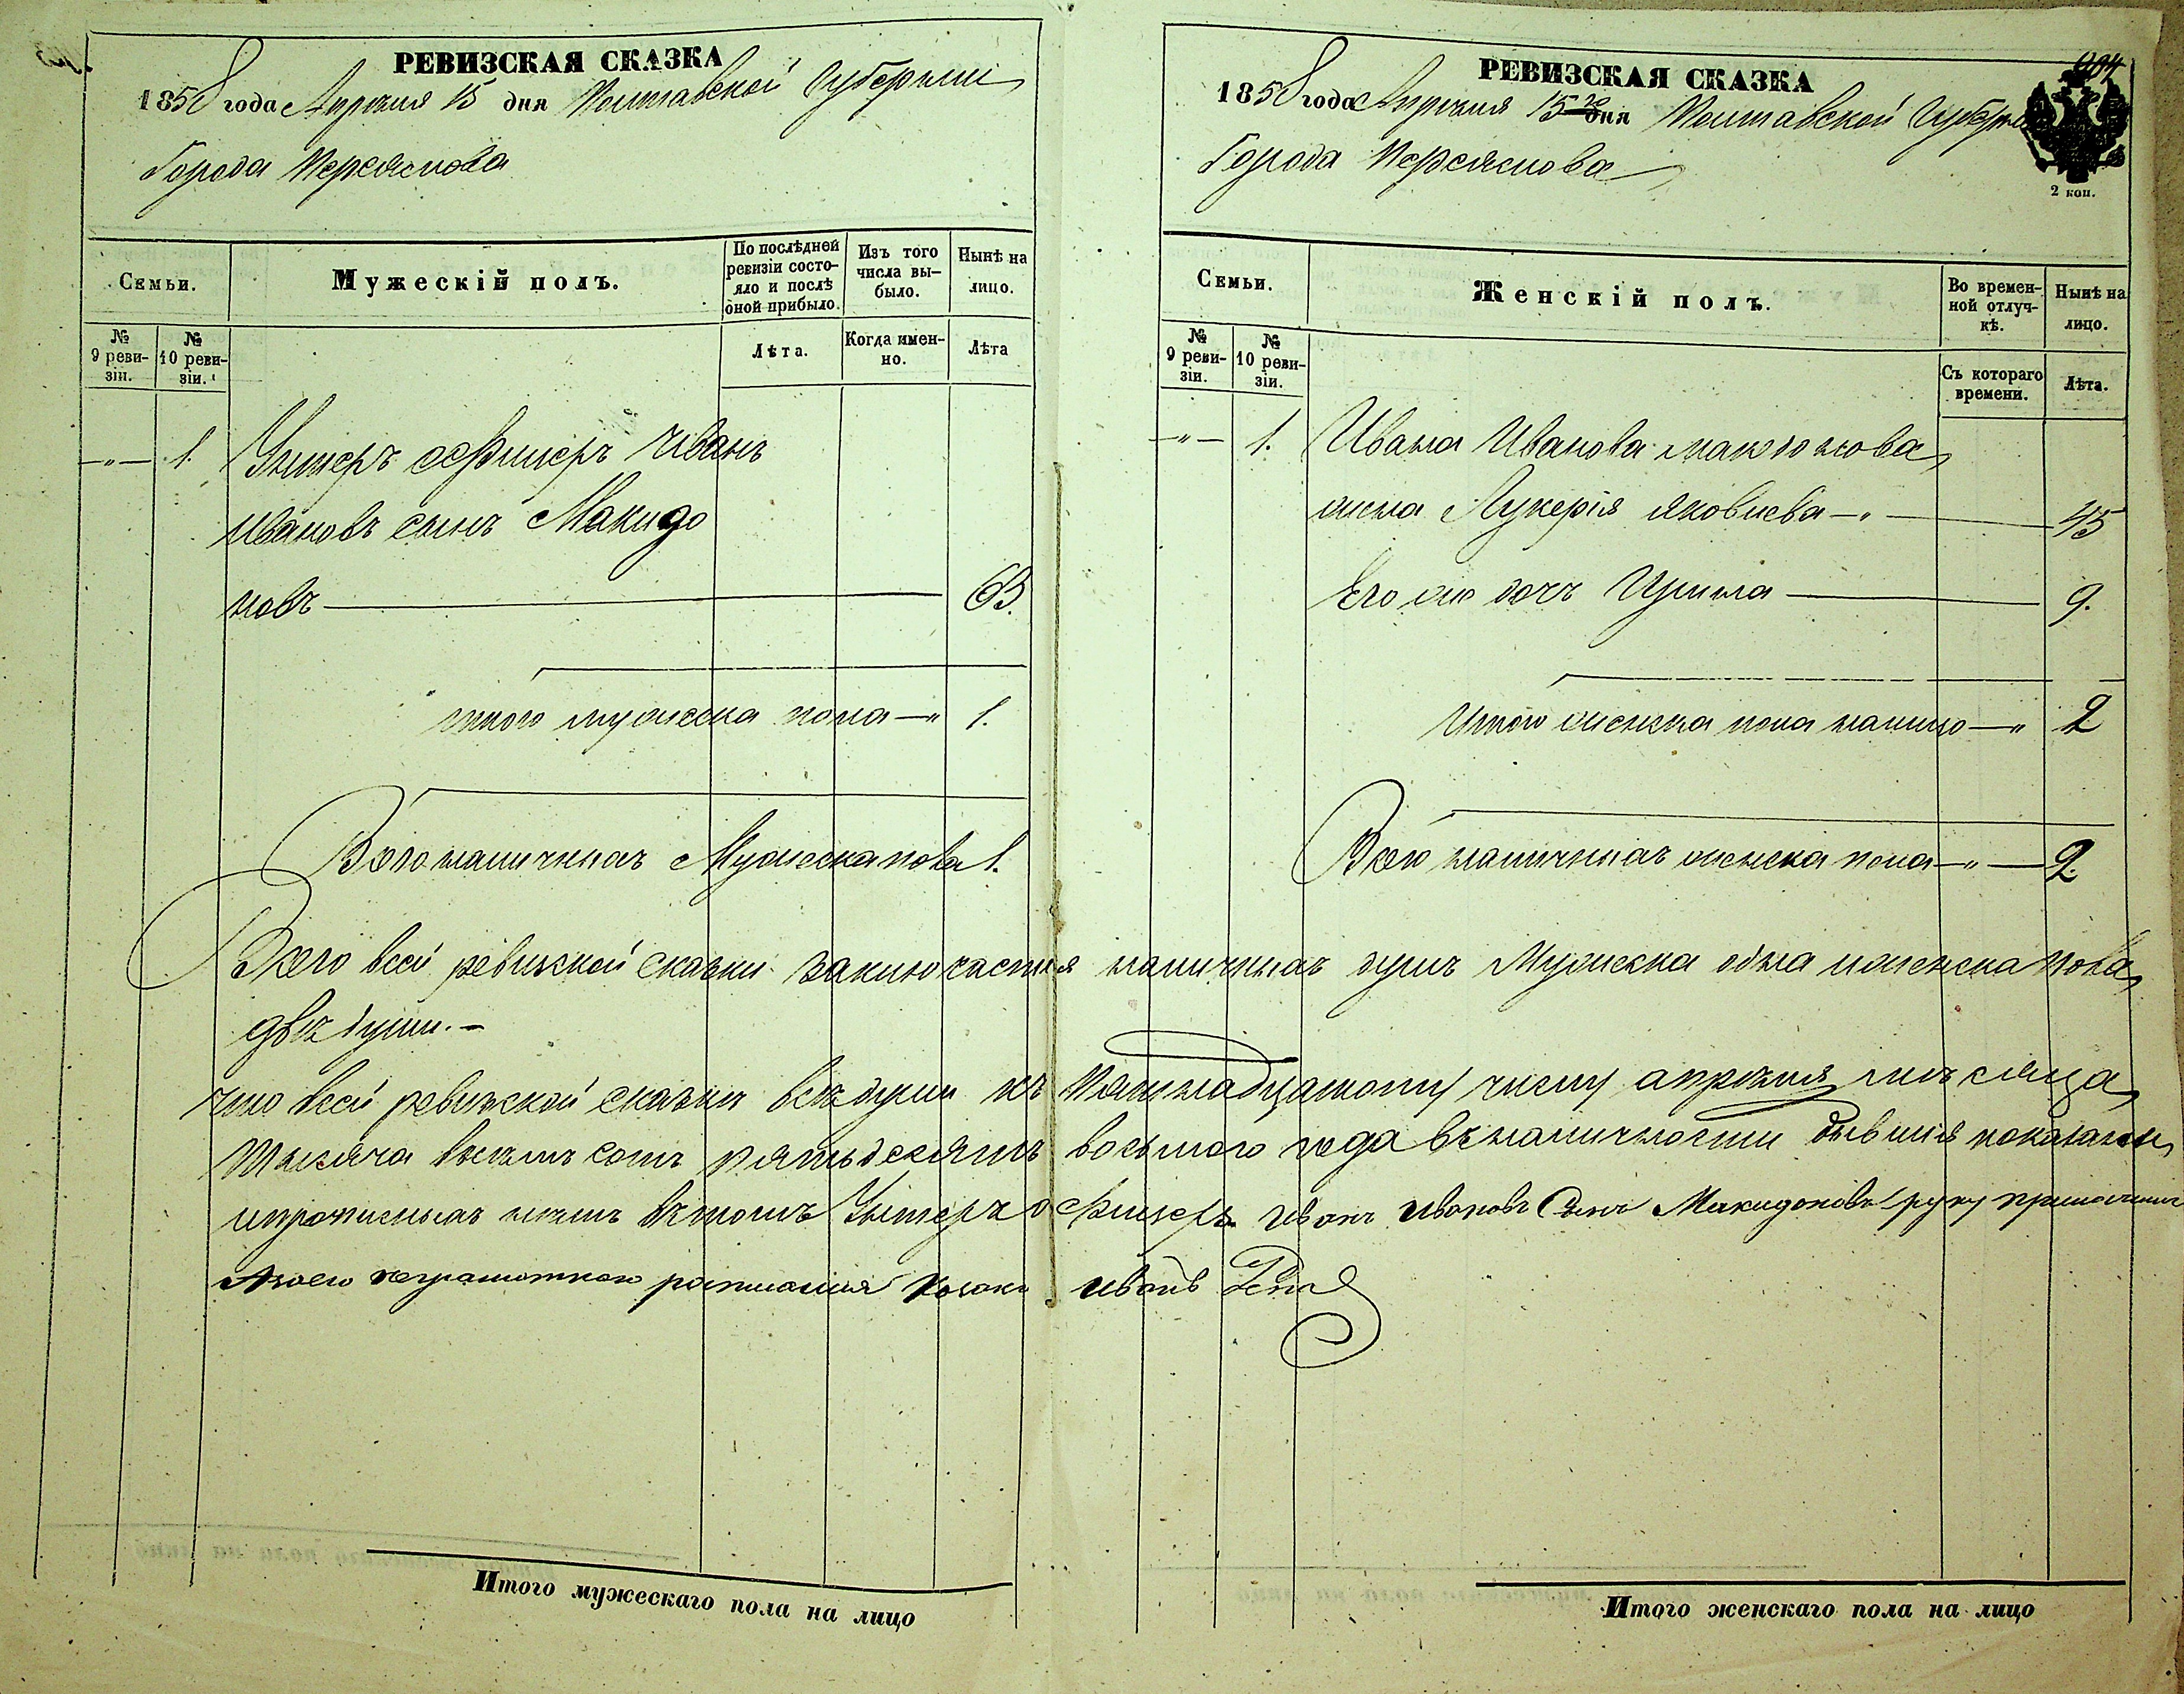 РЕВИЗСКАЯ СКАЗКА
1858 года Апрѣля 15 дня Полтавской Губерніи
Города Переяслова
Семьи.
Мужескій полъ.
По послѣдней ревизіи состояло и послѣ оной прибыло.
Изъ того числа выбыло.
Нынѣ на лицо.
№ 9 ревизіи.
№ 10 ревизіи.
Лѣта.
Когда именно.
Лѣта
—"— 1. Унтеръ офицеръ Иванъ
Ивановъ сынъ Макидо
новъ — 63.
итого мужеска пола —" 1.
Всего наличныхъ Мужеска пола 1.
РЕВИЗСКАЯ СКАЗКА
1858 года Апрѣля 15го дня Полтавской Губерніи
Города Переяслова
2 коп.
Семьи.
Женскій полъ.
Во временной отлучкѣ.
Нынѣ на лицо.
№ 9 ревизіи.
№ 10 ревизіи.
Съ котораго времени.
Лѣта.
—"— 1. Ивана Иванова
жена Лукерія Яковлева —"— 45
Его же дочь Ирина — 9.
Итого женска пола налицо —" 2
Всего наличныхъ женска пола —"— 2.
Всего всей ревизкой сказки заключается наличныхъ душъ Мужеска одна и женска пола
двѣ души. —
что всей ревизской сказки всѣ души къ пятнадцатому числу апрѣля мѣсяца
тысяча восемъ сотъ пятьдесятъ восьмого года въ наличности бывшія показаны
и прописныхъ нѣтъ въ томъ Унтеръ офицеръ Иванъ Ивановъ Сынъ Макидоновъ руку приложилъ
А за его неграмотного росписался Козакъ Иванъ
Итого мужескаго пола на лицо
Итого женскаго пола на лицо